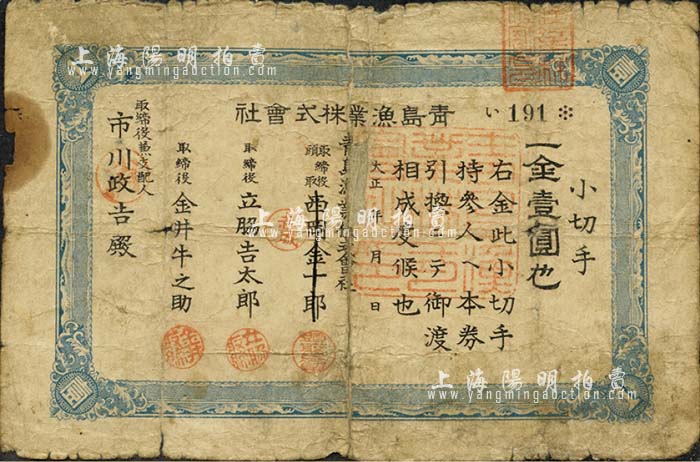 上海陽明拍賣
www.yangmingauction.com
青島漁業株式會社
い 191
小切手
一金壹圓也
右金此小切手
持參人ヘ本券
引換ニテ御渡
相成度候也
大正 年 月 日
青島漁業株式會社
取締役
頭取
金十郎
取締役 立脇吉太郎
取締役 金井牛之助
取締役兼支配人
市川政吉殿
上海陽明拍賣
www.yangmingauction.com
上海陽明拍賣
www.yangmingauction.com